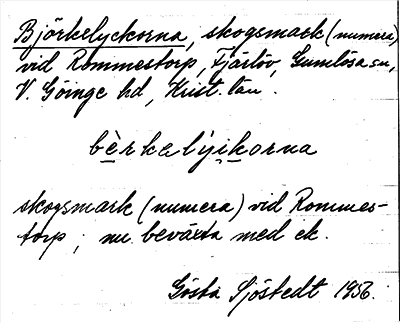 Björkelyckorna, skogsmark (numera)
vid Rommestorp, Fjärlöv, Gumlösa sn,
V. Göinge hd, Krist. län.
bèrkelýikorna
skogsmark (numera) vid Rommes-
torp; nu beväxta med ek.
Gösta Sjöstedt 1956.